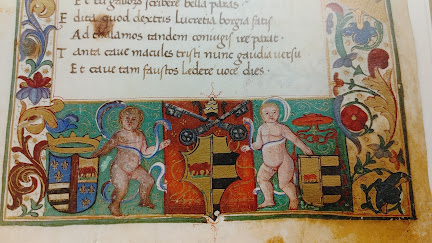 Et tu gabors scribere bella paras.
Edita quod dextris Lucretia borgia fatis
Ad thalamos tandem coniugis ire parat.
Tanta cave macules tristi nunc gaudia versu
Et cave tam faustos ledere voce dies.